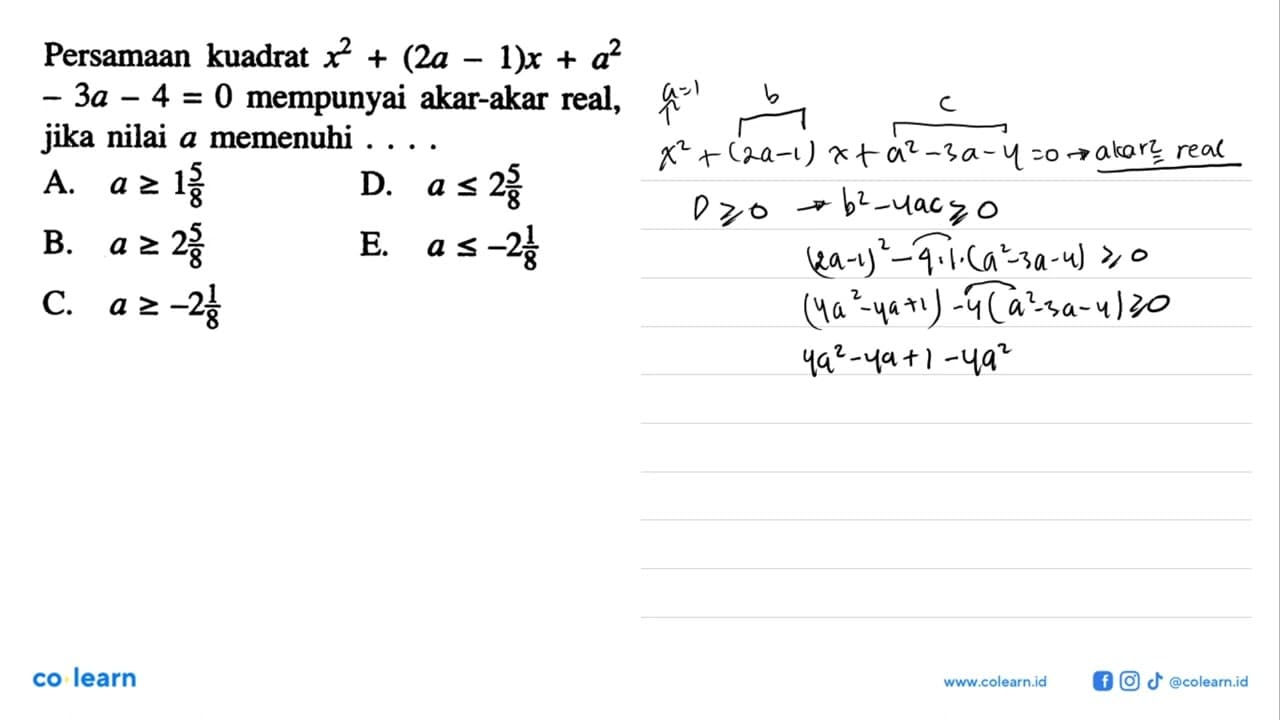 Persamaan kuadrat x² + (2a − 1)x + a²
− 3a − 4 = 0 mempunyai akar-akar real,
jika nilai a memenuhi . . . .
A. a ≥ 1 5/8
D. a ≤ 2 5/8
B. a ≥ 2 5/8
E. a ≤ −2 1/8
C. a ≥ −2 1/8
a=1 b c
x² + (2a−1) x + a²−3a−4 =0 → akar² real
D ⩾ 0 → b²−4ac ⩾ 0
(2a−1)² − 4.1.(a²−3a−4) ⩾ 0
(4a²−4a+1) −4(a²−3a−4) ⩾ 0
4a²−4a+1 −4a²
co learn
www.colearn.id
@colearn.id